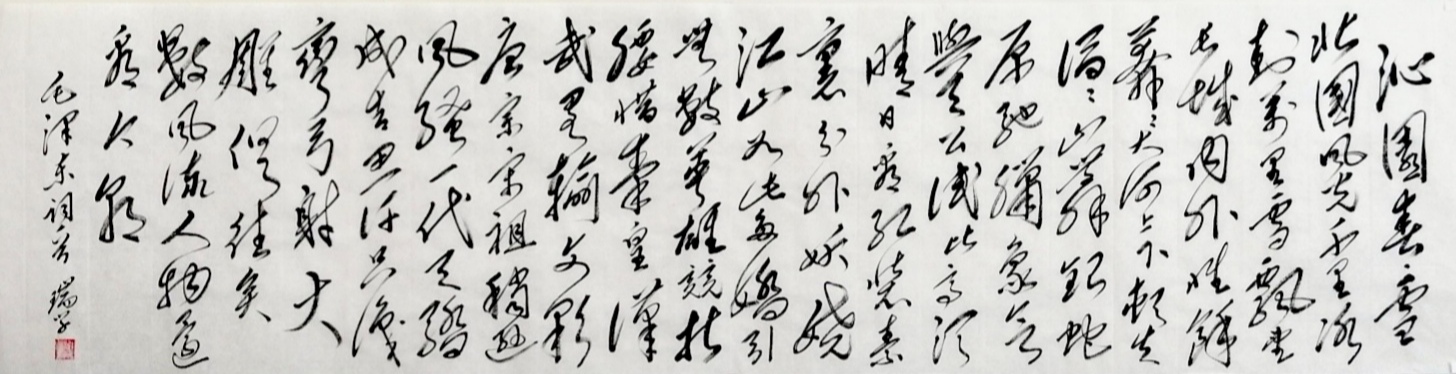 沁園春雪
北國風光千里冰
封萬里雪飄望
長城內外惟餘
莽〻大河上下頓失
滔〻山舞銀蛇
原馳臘象欲
與天公試比高須
晴日看紅裝素
裹分外妖嬈
江山如此多嬌引
無數英雄競折
腰惜秦皇漢
武畧輸文彩
唐宗宋祖稍遜
風騷一代天驕
成吉思汗只識
彎弓射大
雕俱往矣
數風流人物還
看今朝
毛澤東詞一首